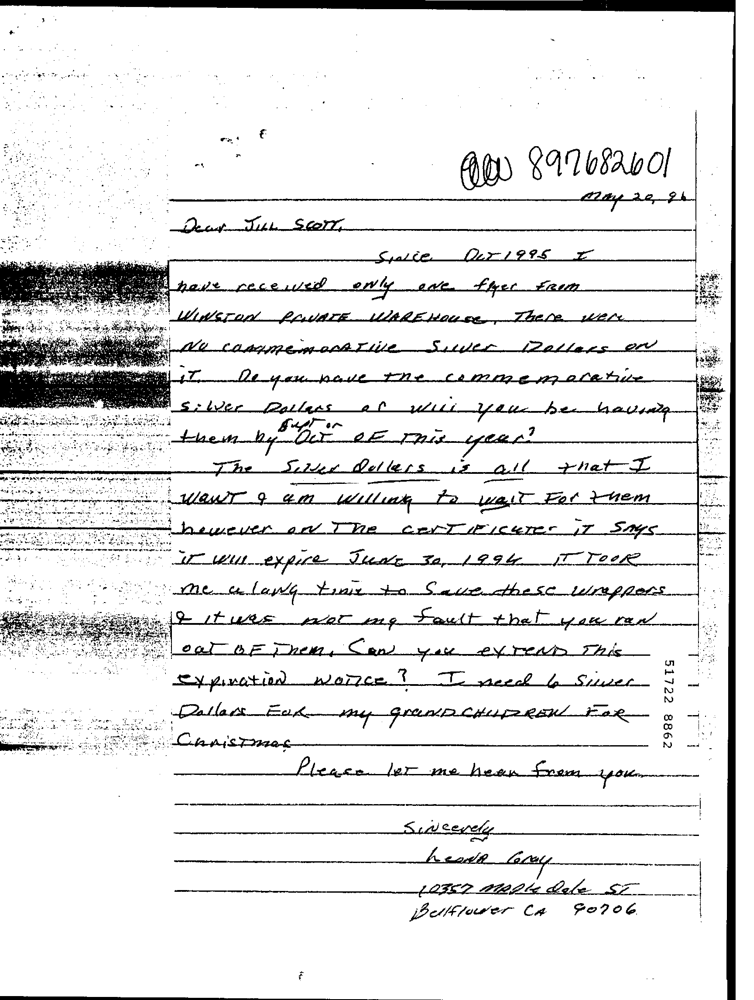 897682601
May 20, 96
Dear Jill Scott,
Since Oct 1995 I
have received only one flyer from
Winston Private Warehouse. There were
No commemorative Silver Dollars on
it. Do you have the commemorative
silver Dollars or will you be having
Sept or
them by Oct of This year?
The Silver Dollars is all that I
want & am willing to wait For them
however on The certificates it says
it will expire June 30, 1996. It Took
me a long time to save these wrappers
& it was not my fault that you ran
out of Them. Can you extend This
expiration notice? I need 6 Silver
Dollars For my grandchildren For
Christmas
Please let me hear from you
Sincerely
Leona Gray
10357 Mapledale ST
Bellflower CA 90706
51722 8862